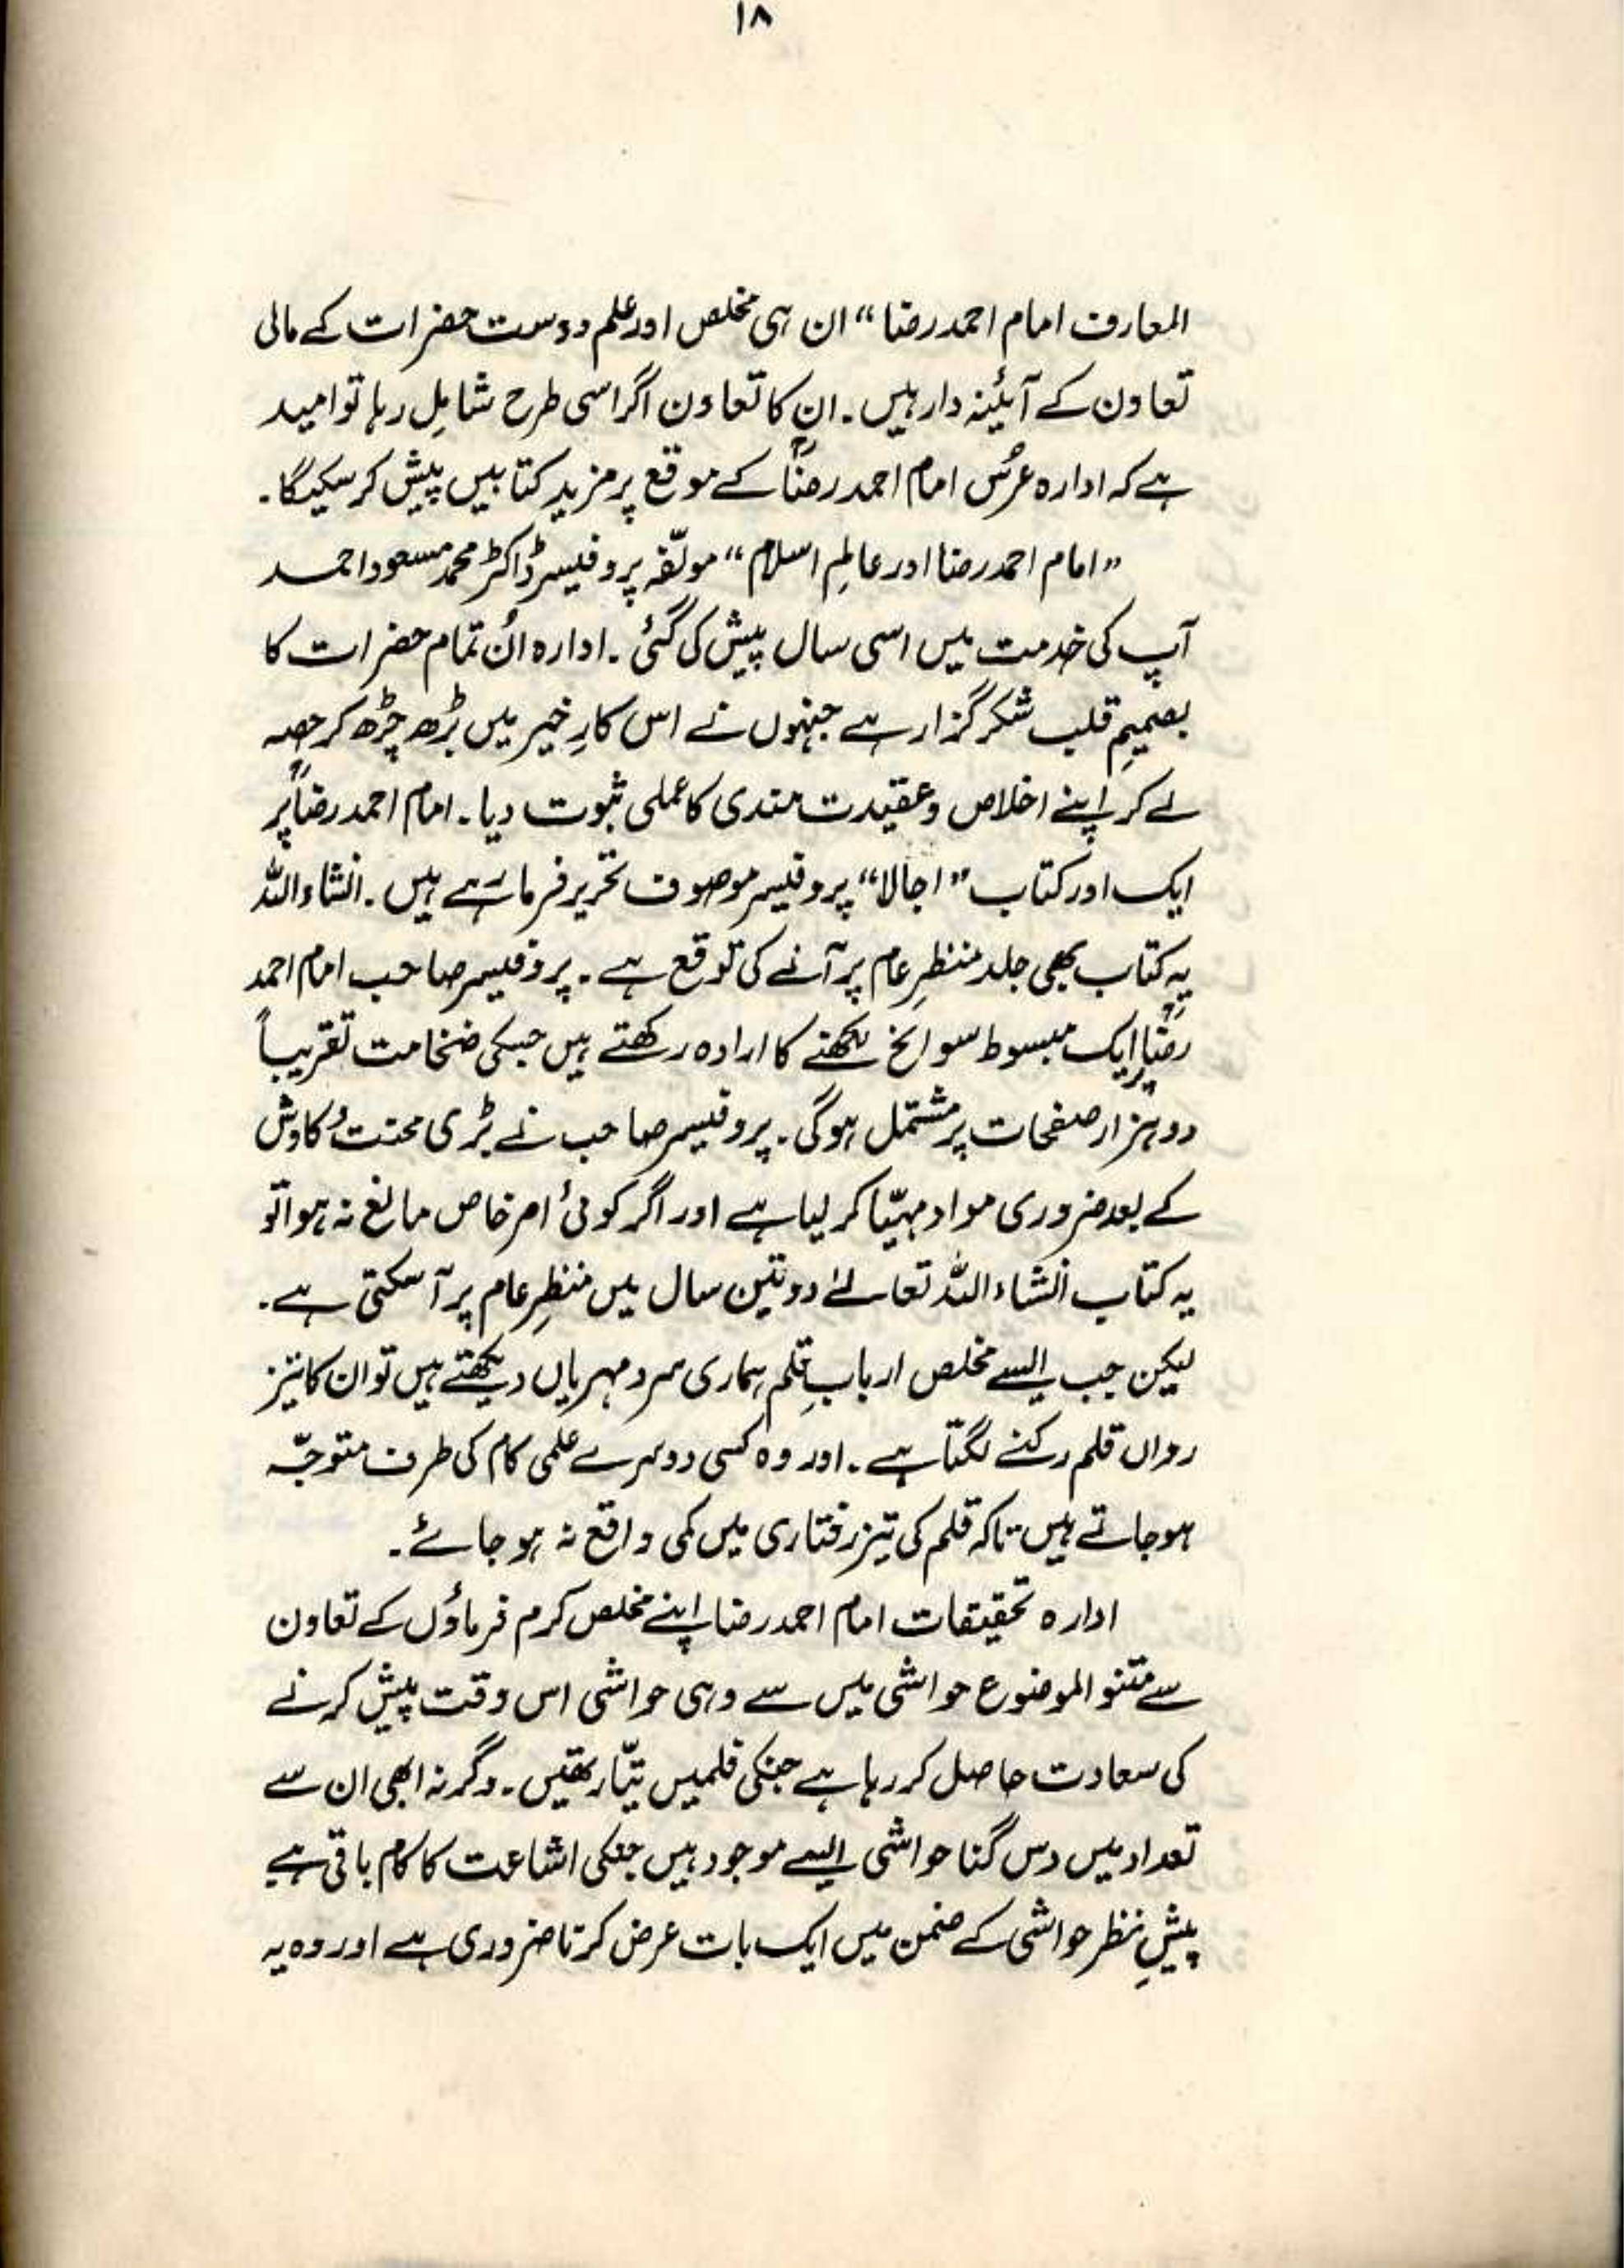 ۱۸
المعارف امام احمد رضا“ ان ہی مخلص اور علم دوست حضرات کے مالی
تعاون کے آئینہ دار ہیں۔ ان کا تعاون اگر اسی طرح شاملِ رہا تو امید
ہے کہ ادارہ عرُس امام احمد رضاؒ کے موقع پر مزید کتابیں پیش کر سکیگا۔
”امام احمد رضا اور عالمِ اسلام“ مولّفہ پروفیسر ڈاکٹر محمد مسعود احمد
آپ کی خدمت میں اسی سال پیش کی گئی۔ ادارہ اُن تمام حضرات کا
بصمیمِ قلب شکر گزار ہے جنہوں نے اس کارِ خیر میں بڑھ چڑھ کر حصہ
لے کر اپنے اخلاص و عقیدت مندی کا عملی ثبوت دیا۔ امام احمد رضاؒ پر
ایک اور کتاب ”اجالا“ پروفیسر موصوف تحریر فرما رہے ہیں۔ انشاء اللہ
یہ کتاب بھی جلد منظرِ عام پر آنے کی توقع ہے۔ پروفیسر صاحب امام احمد
رضاؒ پر ایک مبسوط سوانح لکھنے کا ارادہ رکھتے ہیں جسکی ضخامت تقریباً
دو ہزار صفحات پر مشتمل ہوگی۔ پروفیسر صاحب نے بڑی محنت و کاوش
کے بعد ضروری مواد مہیّا کر لیا ہے اور اگر کوئی امر خاص مانع نہ ہوا تو
یہ کتاب انشاء اللہ تعالےٰ دو تین سال میں منظرِ عام پر آ سکتی ہے۔
لیکن جب ایسے مخلص اربابِ قلم ہماری سرد مہریاں دیکھتے ہیں تو ان کا تیز
رواں قلم رکنے لگتا ہے۔ اور وہ کسی دوسرے علمی کام کی طرف متوجّہ
ہو جاتے ہیں تاکہ قلم کی تیز رفتاری میں کمی واقع نہ ہو جائے۔
ادارہ تحقیقات امام احمد رضا اپنے مخلص کرم فرماؤں کے تعاون
سے متنو الموضوع حواشی میں سے وہی حواشی اس وقت پیش کرنے
کی سعادت حاصل کر رہا ہے جنکی فلمیں تیّار تھیں۔ وگرنہ ابھی ان سے
تعداد میں دس گنا حواشی ایسے موجود ہیں جنکی اشاعت کا کام باقی ہے
پیشِ نظر حواشی کے ضمن میں ایک بات عرض کرنا ضروری ہے اور وہ یہ